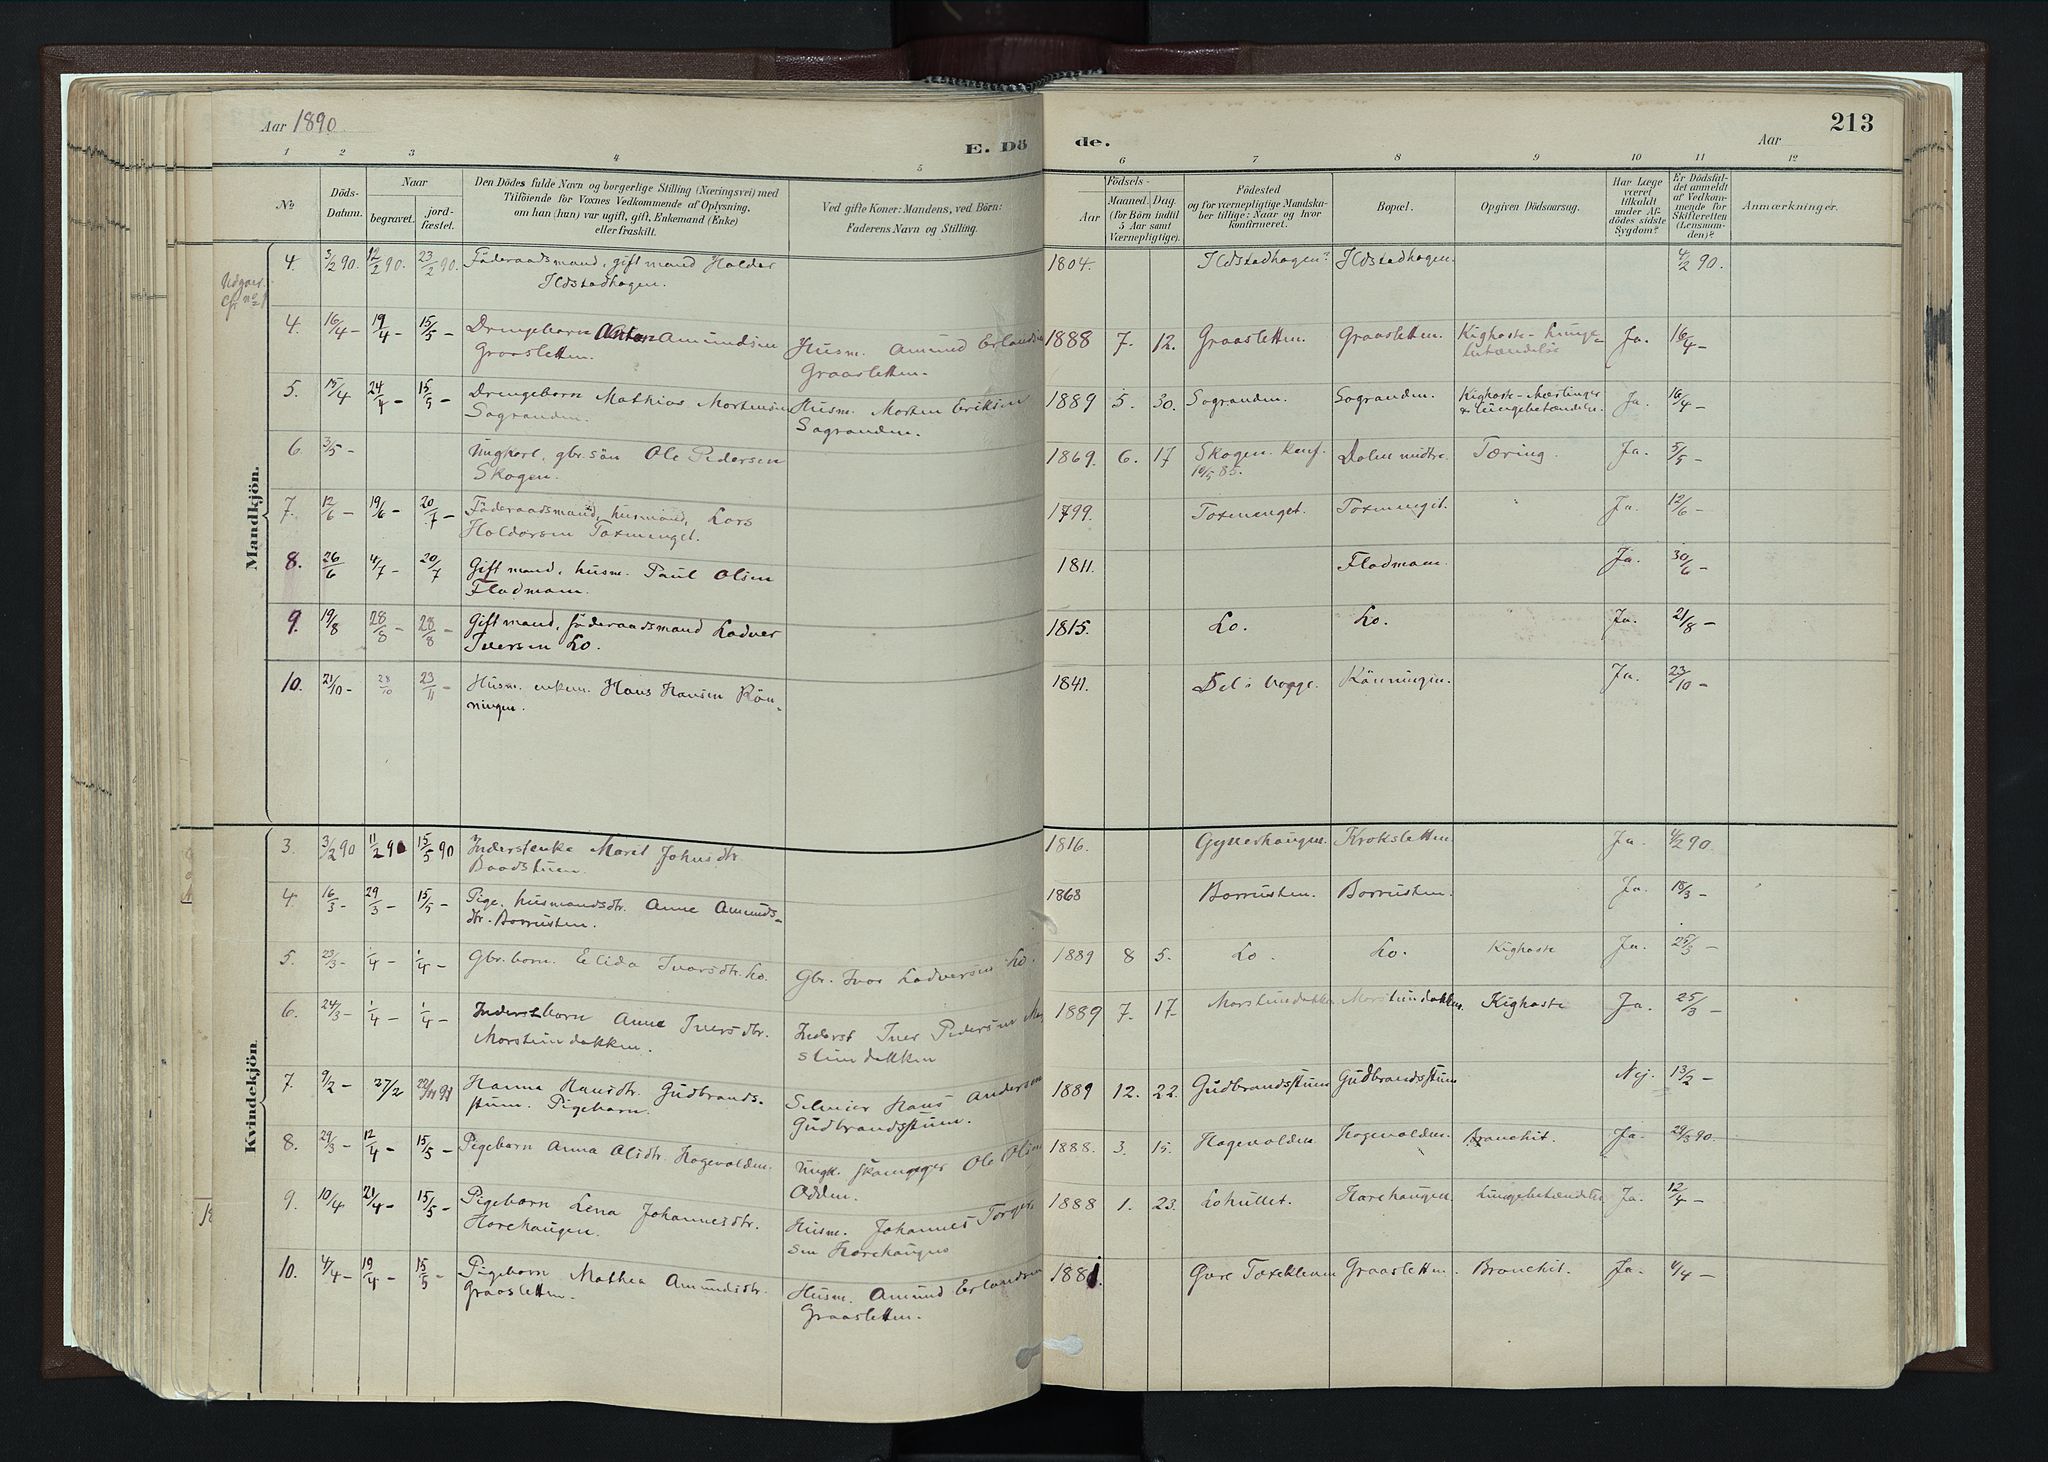 Aar 1890
E. Dö
de.
Aar
213
1 2 3 4 5 6 7 8 9 10 11 12
No
Döds-
Datum.
Naar
begravet.
jord-
fæstet.
Den Dödes fulde Navn og borgerlige Stilling (Næringsvei) med
Tilföiende for Voxnes Vedkommende af Oplysning,
om han (hun) var ugift, gift, Enkemand (Enke)
eller fraskilt.
Ved gifte Koner: Mandens, ved Börn:
Faderens Navn og Stilling.
Födsels-
Aar
Maaned. Dag.
(for Börn indtil
5 Aar samt
Værnepligtige).
Födested
og for værnepligtige Mandska-
ber tillige: Naar og hvor
konfirmeret.
Bopæl.
Opgiven Dödsaarsag.
Har Læge
været
tilkaldt
under Af-
dödes sidste
Sygdom?
Er Dödsfal-
det anmeldt
af Vedkom-
mende for
Skifteretten
(Lensman-
den)?
Anmærkninger.
Mandkjön.
Udgaar
cfr. no 1
4. 3/2 90. 12/2 90. 23/2 90. Föderaadsmand, gift mand Haldor 1804. Ildstadhagen? Ildstadhagen. 4/2 90.
Ildstadhagen.
4. 16/4 - 19/4 - 15/5 - Drengebarn Anton Amundsen Husm. Amund Erlandsen 1888 7. 12. Graasletten. Graasletten. Kighoste - Lunge- Ja. 16/4 -
Graasletten. Graasletten. betændelse
5. 15/4 24/4 - 15/5 - Drengebarn Mathias Mortensen Husm. Morten Eriksen 1889 5. 30. Sogranden. Sogranden. Kighoste - Mæslinger Ja. 16/4 -
Sogranden. Sogranden. & lungebetændelse.
6. 3/5 - Ungkarl, gbr. sön Ole Pedersen 1869. 6. 17 Skogen. Konf. Dalen midtre. Tæring. Ja. 5/5 -
Skogen. 10/5 85.
7. 12/6 - 19/6 - 20/7 - Föderaadsmand, husmand, Lars 1799. Toxmenget. Toxmenget. " Ja. 12/6 -
Haldorsen Toxmenget.
8. 26/6 4/7 - 20/7 Gift mand, husm. Paul Olsen 1811. Fladmoen. Ja. 30/6 -
Fladmoen.
9. 19/8 28/8 - 28/8 - Gift mand, föderaadsmand Ladver 1815. Lo. Lo. Ja. 21/8 -
Iversen Lo.
10. 21/10 - 28/10 23/11 - Husm. enkem. Hans Hansen Rön- 1841. Del i Vaage. Rönningen. Ja. 23/10 -
ningen.
Kvindekjön
3. 3/2 90 11/2 90 15/5 90 Inderstenke Marit Johnsdtr. 1816. Kroksletten. Ja. 4/2 90.
Baadstuen.
4. 16/3 - 29/3 - 15/5 - Pige, husmandsdtr. Anne Amunds- 1868 Borrusten. Borrusten. Ja. 18/3 -
dtr. Borrusten.
5. 23/3 - 1/4 - 1/4 - Gbr. barn. Elida Ivarsdtr. Lo. Gbr. Ivar Ladversen Lo. 1889 8 5. Lo. Lo. Kighoste Ja. 25/3 -
6. 24/3 - 1/4 - 1/4 - Inderstbarn Anne Iversdtr. Inderst Iver Pedersen Mor- 1889 7. 17 Morstuindakken Morstuindakken. Kighoste Ja. 25/3 -
Morstuindakken. stuindakken
7. 9/2 - 27/2 Hanna Hansdtr. Gudbrands- Selveier Hans Andersen 1889 12. 22. Gudbrandsstuen Gudbrandsstuen Nej. 13/2 -
stuen. Pigebarn. Gudbrandsstuen.
8. 29/3 - 12/4 - 15/5 - Pigebarn Anna Olsdtr. Hagevolden. Ungk. skomager Ole Olsen 1888. 3. 15. Hagevolden. Hagevolden. Bronchit. Ja. 29/3 90.
Odden.
9. 10/4 21/4 - 15/5 - Pigebarn Lena Johannesdtr. Husm. Johannes Torger- 1888 1. 23. Lohullet. Harehaugen. Lungebetændelse Ja. 12/4 -
Harehaugen. sen Harehaugen
10. 4/4 - 19/4 - 15/5 - Pigebarn Mathea Amundsdtr. Husm. Amund Erlandsen 1881. Graasletten. Bronchit. Ja. 4/4 -
Graasletten. Graasletten.